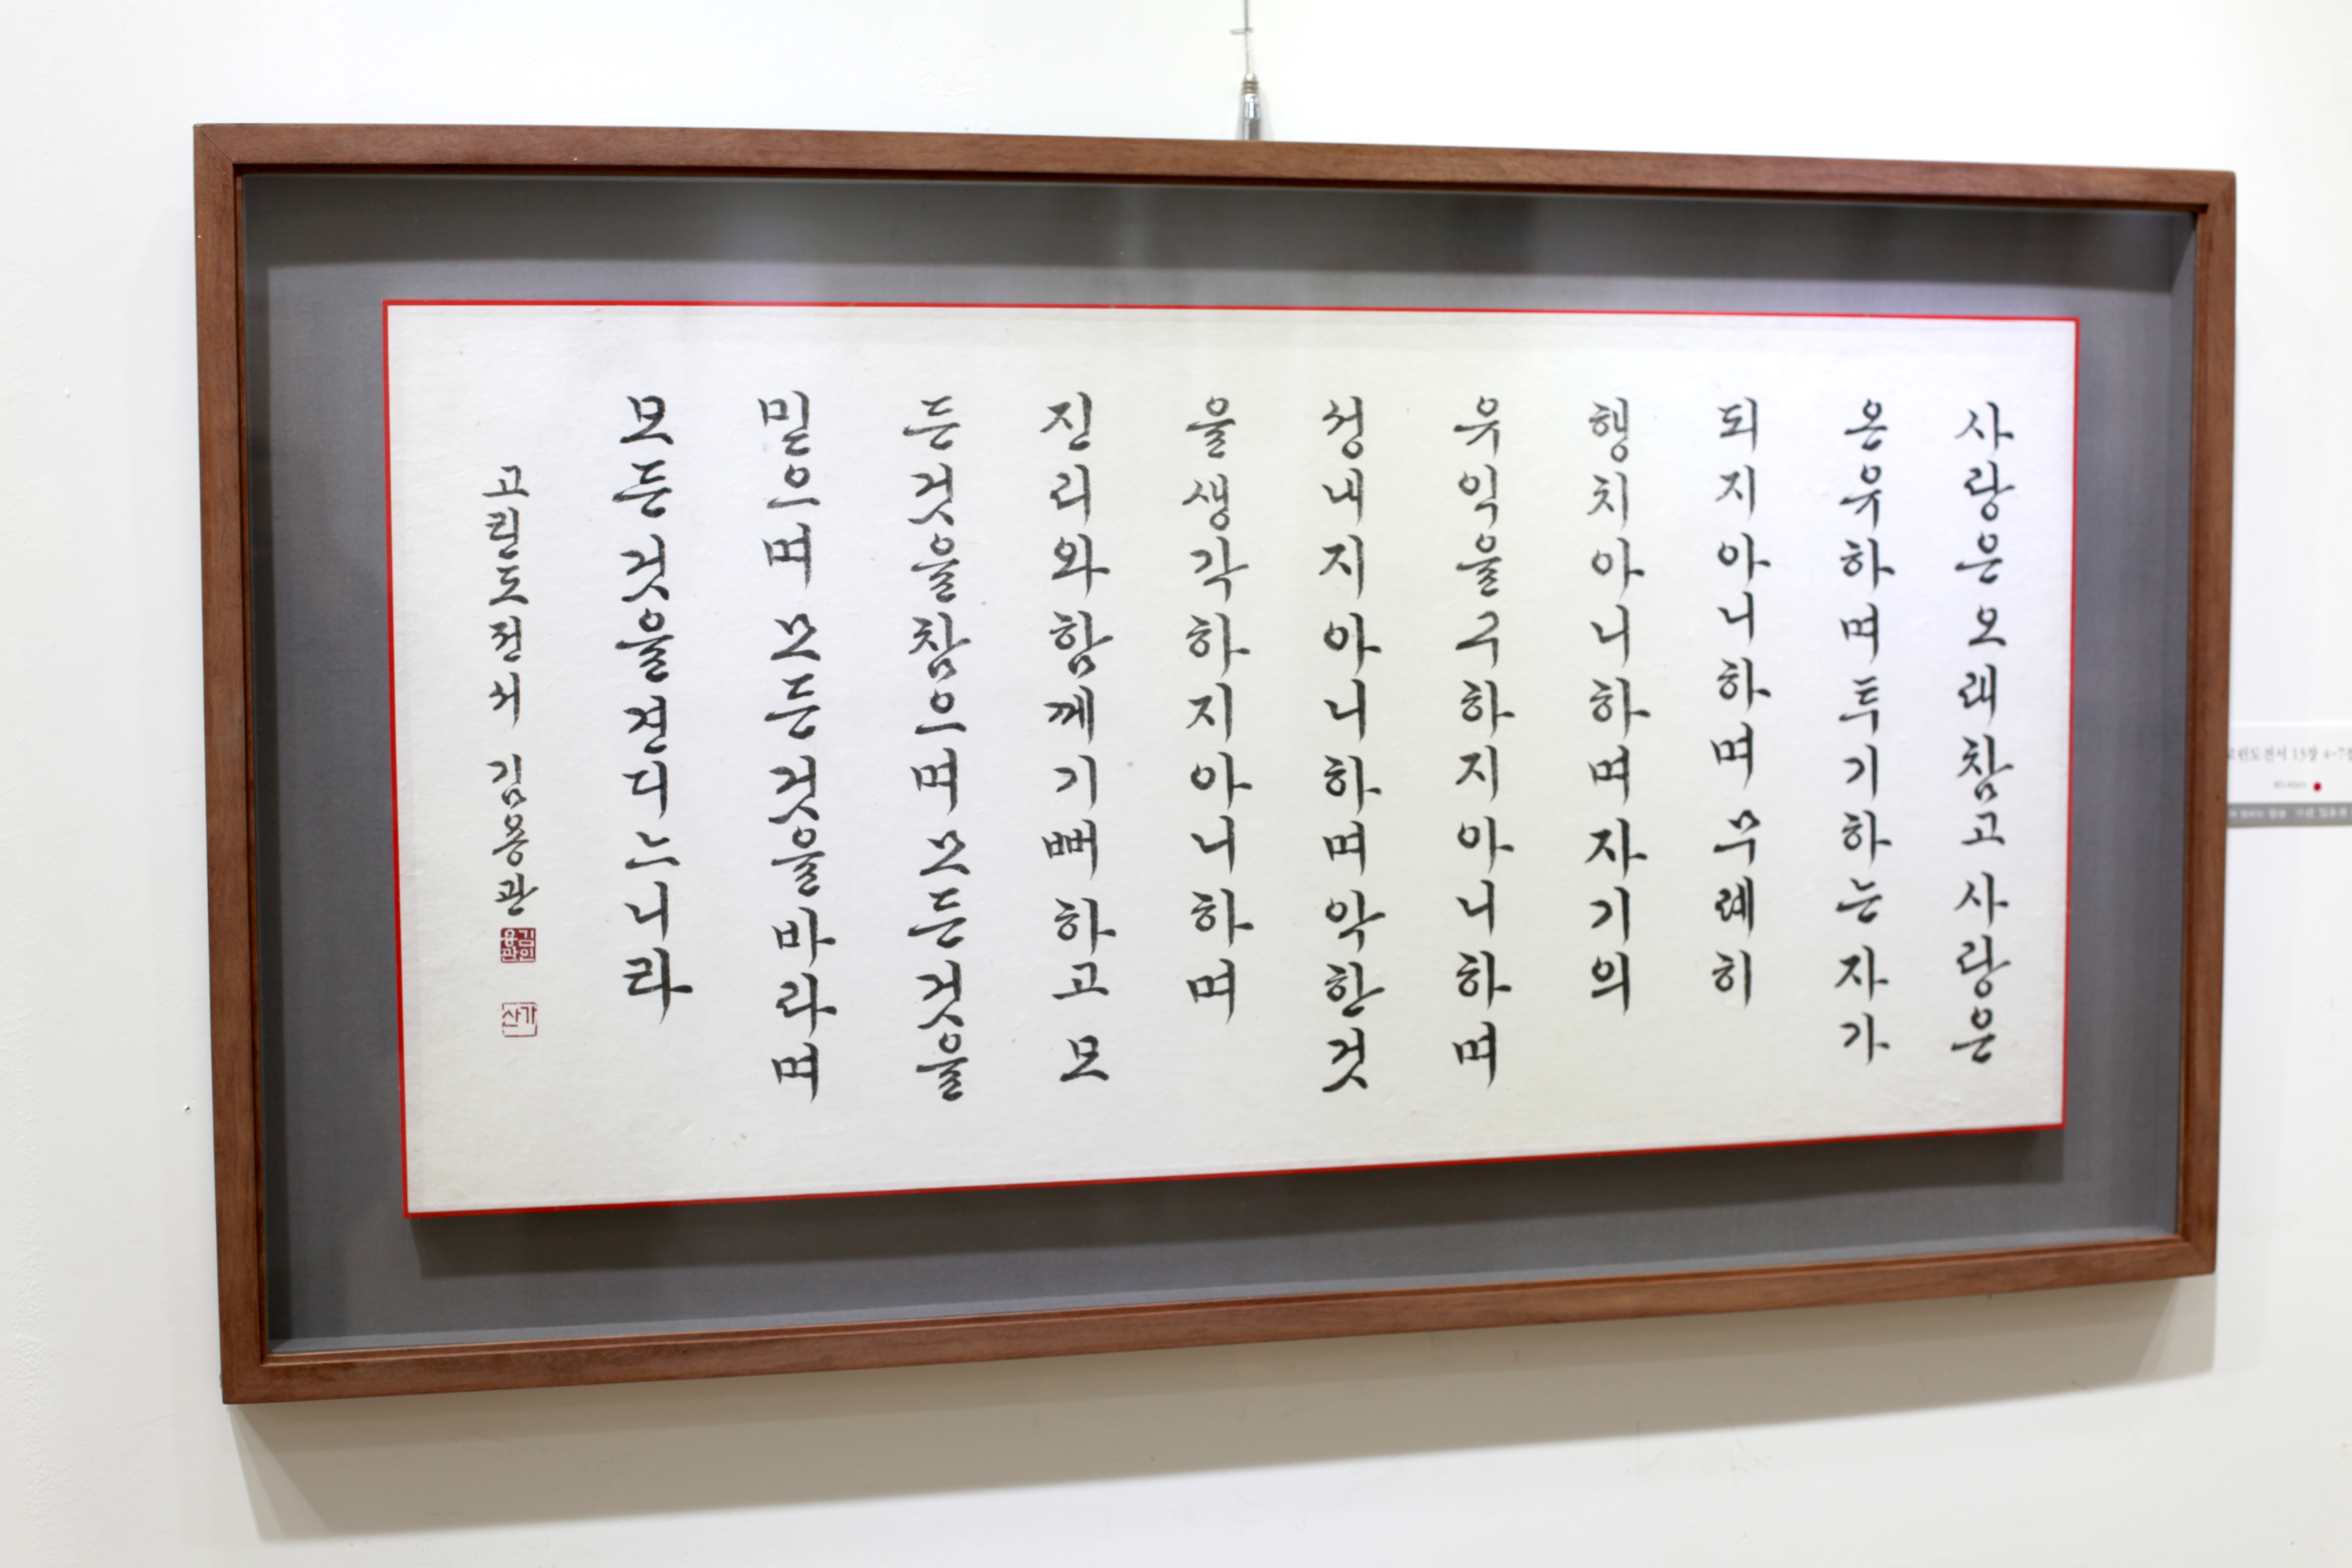 사랑은오래참고사랑은
온유하며투기하는자가
되지아니하며무례히
행치아니하며자기의
유익을구하지아니하며
성내지아니하며악한것
을생각하지아니하며
진리와함께기뻐하고모
든것을참으며모든것을
믿으며모든것을바라며
모든것을견디느니라
고린도전서 김용관
김인용관
가산
고린도전서 13장 4-7절